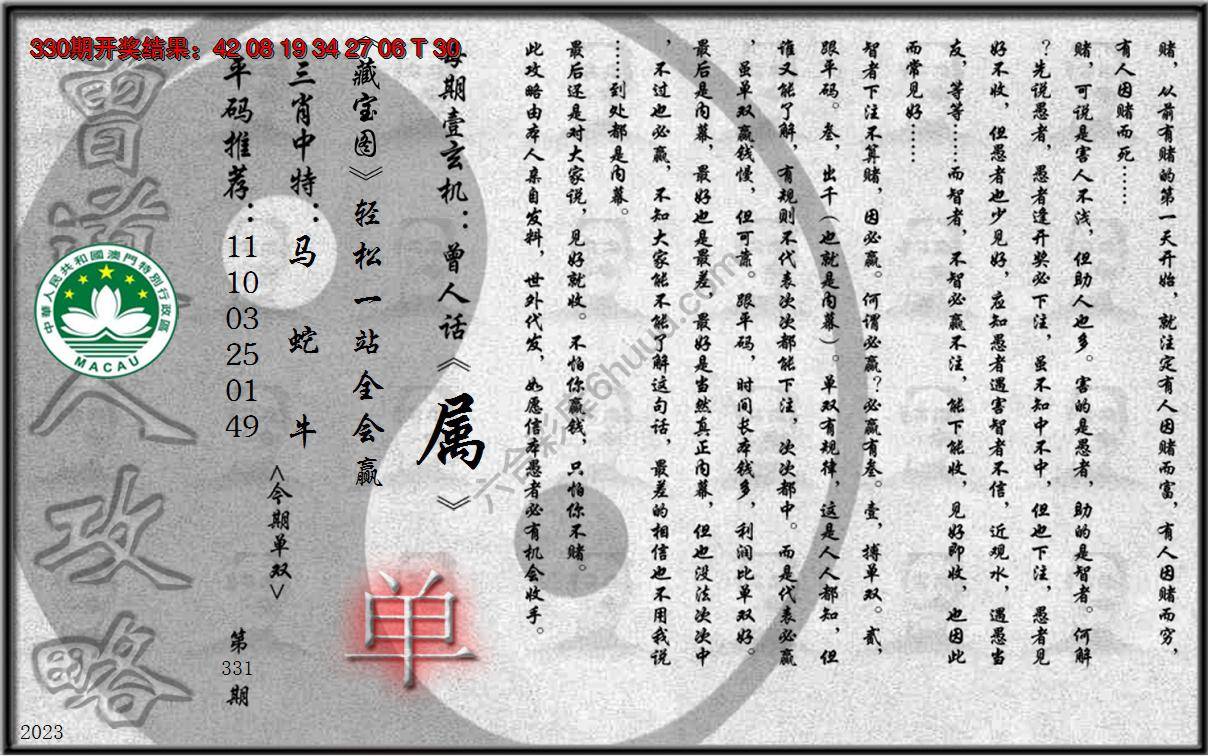 330期开奖结果：42 08 19 34 27 06 T 30
赌，从前有赌的第一天开始，就注定有人因赌而富，有人因赌而穷，
有人因赌而死……
赌，可说是害人不浅，但助人也多。害的是愚者，助的是智者。何解
？先说愚者，愚者逢开奖必下注，虽不知中不中，但也下注，愚者见
好不收，但愚者也少见好，应知愚者遇害智者不信，近观水，遇愚当
友，等等……而智者，不智必赢不注，能下能收，见好即收，也因此
而常见好……
智者下注不算赌，因必赢。何谓必赢？必赢有叁。壹，搏单双。贰，
跟平码。叁，出千（也就是内幕）。单双有规律，这是人人都知，但
谁又能了解，有规则不代表次次都能下注，次次都中。而是代表必赢
，虽单双赢钱慢，但可靠。跟平码，时间长本钱多，利润比单双好。
最后是内幕，最好也是最差，最好是当然真正内幕，但也没法次次中
，不过也必赢，不知大家能不能了解这句话，最差的相信也不用我说
……到处都是内幕。
最后还是对大家说，见好就收。不怕你赢钱，只怕你不赌。
此攻略由本人亲自发料，世外代发，如愿信本愚者必有机会收手。
每期壹玄机：曾人话《属》
《藏宝图》轻松一站全会赢
单
三肖中特：马 蛇 牛
<今期单双>
平码推荐：11 10 03 25 01 49
第331期
曾道人攻略
中華人民共和國澳門特別行政區
MACAU
六合彩库6huuu.com
2023